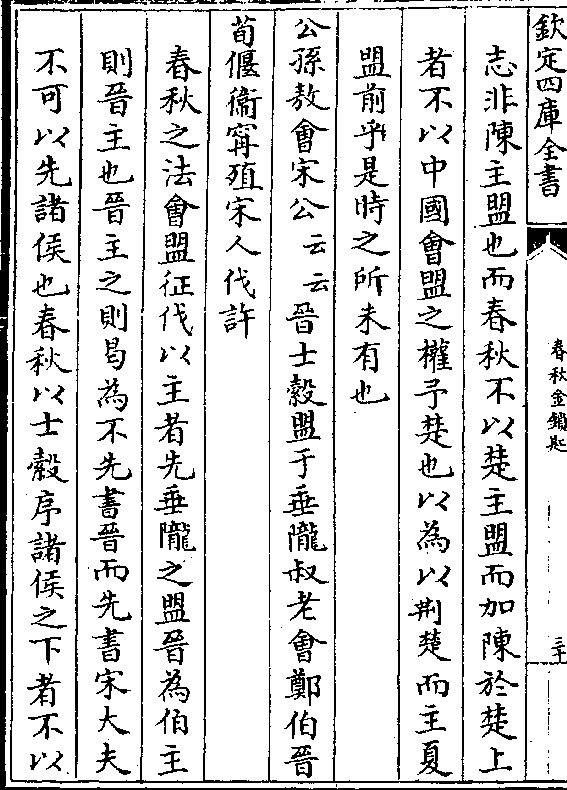 欽定四庫全書
春秋金鎖匙
二十
志非陳主盟也而春秋不以楚主盟而加陳於楚上
者不以中國會盟之權予楚也以為以荆楚而主夏
盟前乎是時之所未有也
公孫敖會宋公云云晉士縠盟于垂隴叔老會鄭伯晉
荀偃衛甯殖宋人伐許
春秋之法會盟征伐以主者先垂隴之盟晉為伯主
則晉主也晉主之則曷為不先書晉而先書宋大夫
不可以先諸侯也春秋以士縠序諸侯之下者不以